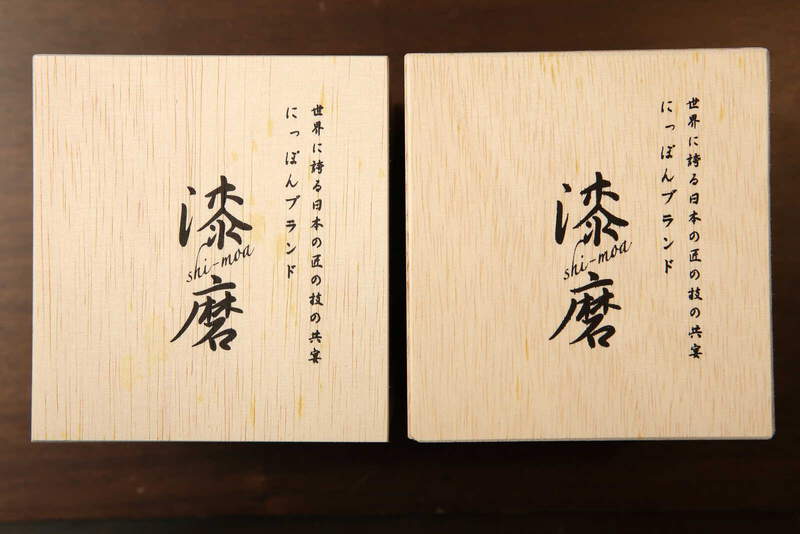 世界に誇る日本の匠の技の共宴
にっぽんブランド
漆
shi-moa
磨
世界に誇る日本の匠の技の共宴
にっぽんブランド
漆
shi-moa
磨